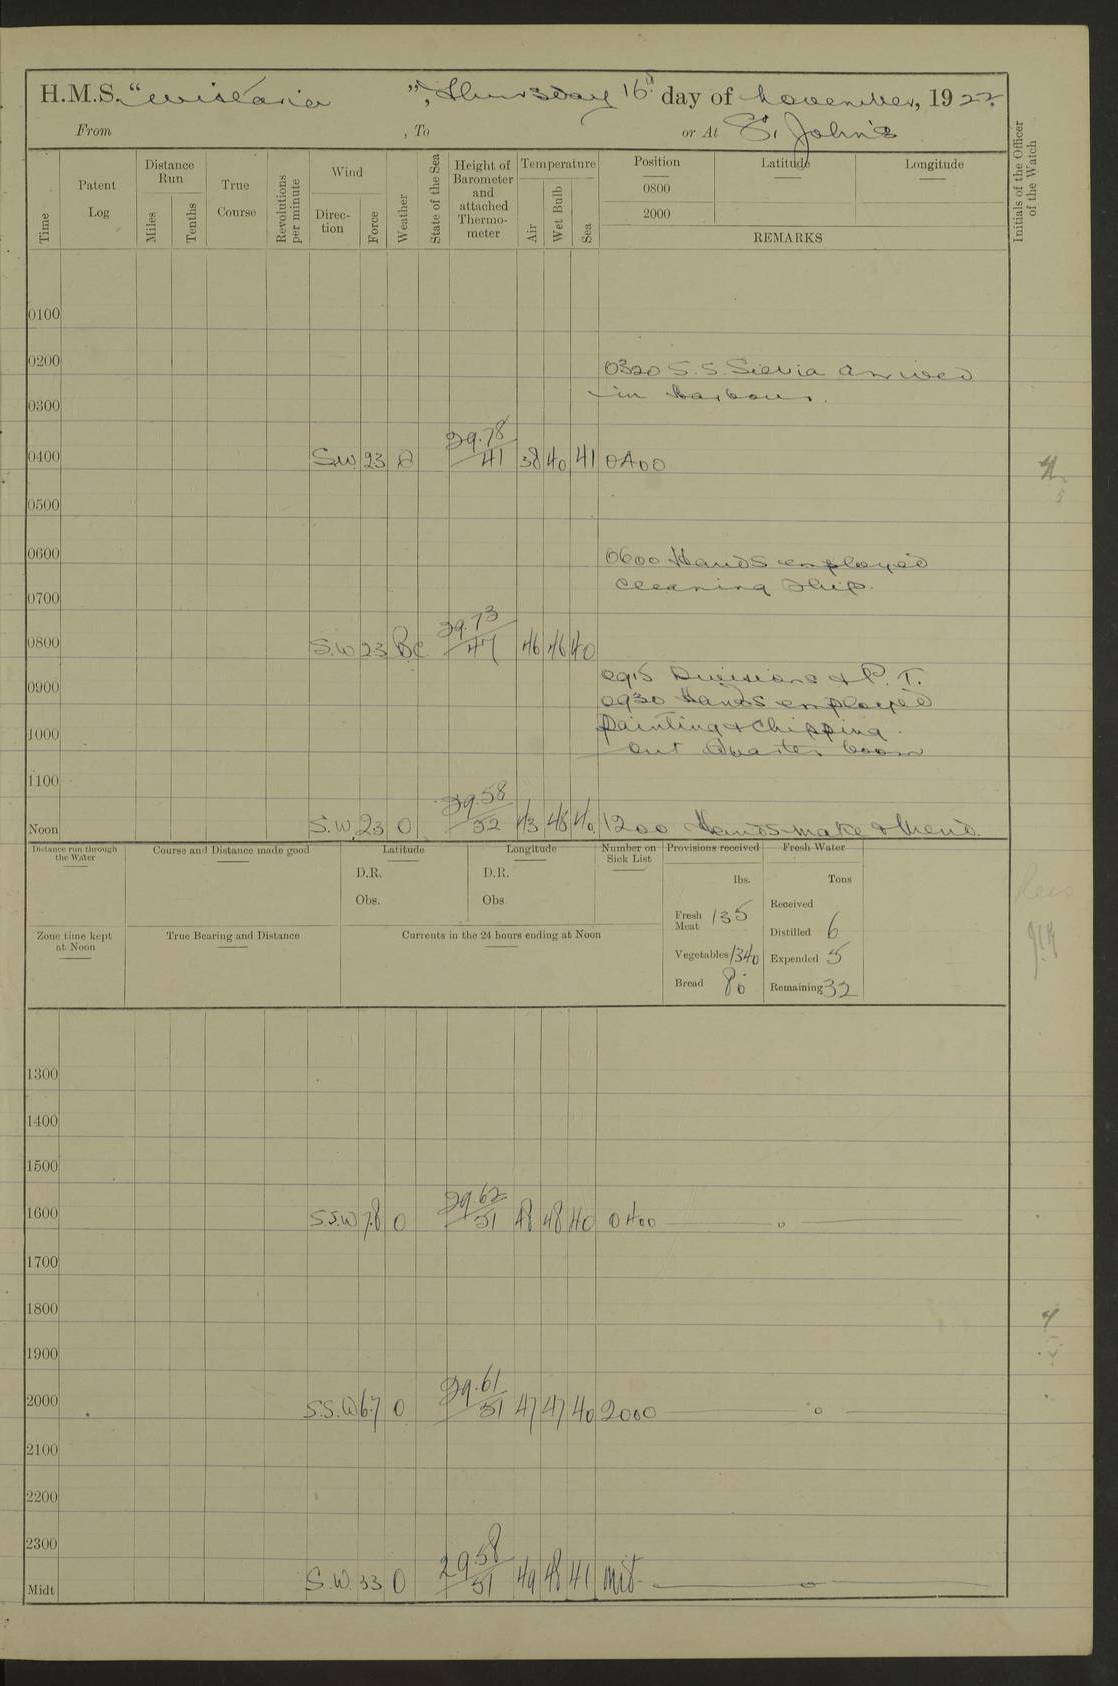 H.M.S. "Wistaria", Thursday 16th day of November, 1922.
From , To or At St. John's
Time
Patent Log
Distance Run
Miles
Tenths
True Course
Revolutions per minute
Wind
Direction
Force
Weather
State of the Sea
Height of Barometer and attached Thermometer
Temperature
Air
Wet Bulb
Sea
Position
0800
2000
Latitude
Longitude
REMARKS
Initials of the Officer of the Watch
0100
0200
0320 S.S. Silvia arrived
0300 in Harbour.
0400 S.W. 23 29.78 41 38 40 41 0400
0500
0600 0600 Hands employed
cleaning ship.
0700
0800 S.W 23 BC 29.73 47 46 46 40
0900 0915 Divisions & P. T.
0930 Hands employed
1000 painting & chipping.
Out Quarter boom
1100
Noon S.W. 23 O 29.58 52 43 48 40 1200 Hands make & mend.
Distance run through the Water
Course and Distance made good
Latitude
D.R.
Obs.
Longitude
D.R.
Obs
Number on Sick List
Provisions received
lbs.
Fresh Meat 135
Vegetables 1340
Bread 80
Fresh Water
Tons
Received
Distilled 6
Expended 5
Remaining 32
Zone time kept at Noon
True Bearing and Distance
Currents in the 24 hours ending at Noon
1300
1400
1500
1600 S.S.W 7.8 O 29.62 51 48 48 40 0400
1700
1800
1900
2000 S.S.W 6.7 O 29.61 51 47 47 40 2000
2100
2200
2300
Midt S.W. 33 O 29.58 51 49 48 41 Mdt